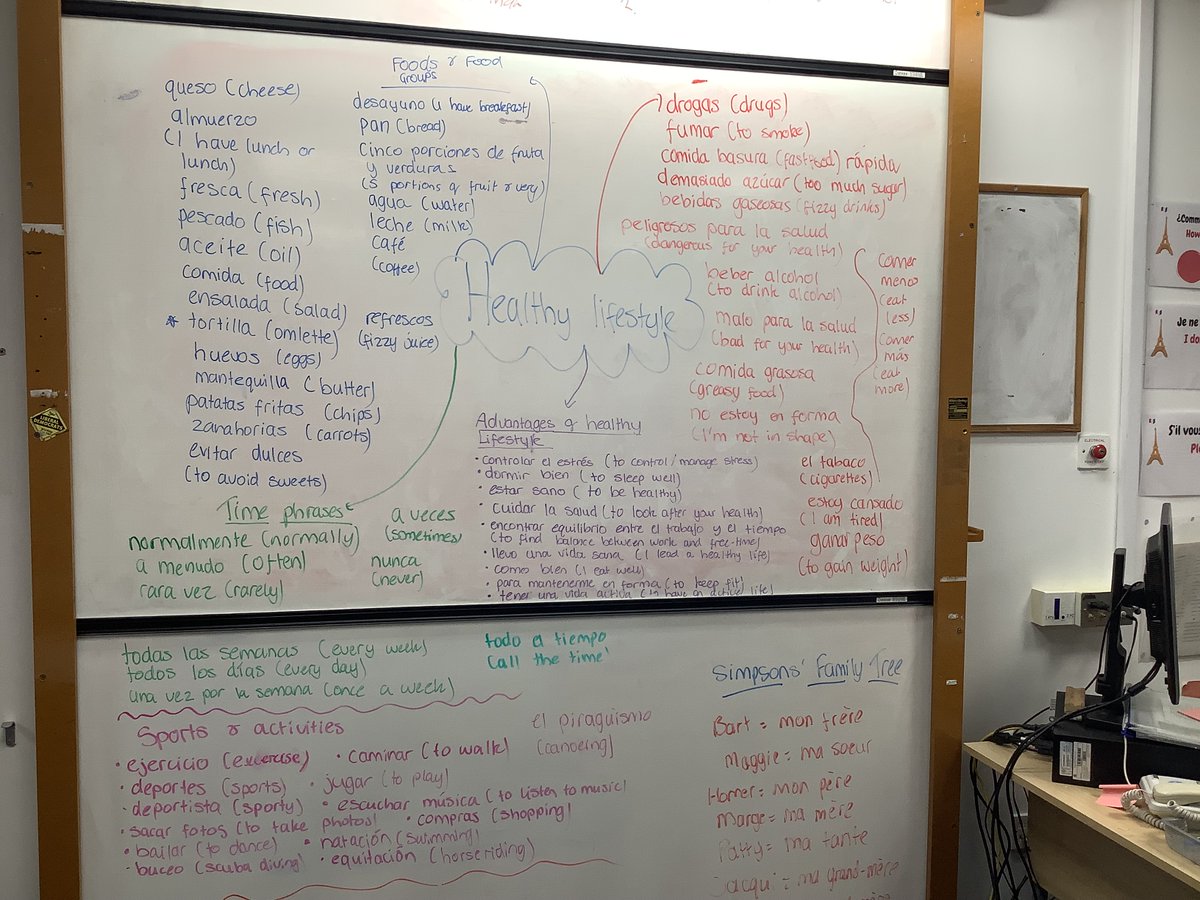 Foods & Food
Groups
queso (cheese)
almuerzo
(I have lunch or
lunch)
fresca (fresh)
pescado (fish)
aceite (oil)
comida (food)
ensalada (salad)
* tortilla (omlette)
huevos (eggs)
mantequilla (butter)
patatas fritas (chips)
zanahorias (carrots)
evitar dulces
(to avoid sweets)
desayuno (I have breakfast)
pan (bread)
cinco porciones de fruta
y verduras
(5 portions of fruit & veg)
agua (water)
leche (milk)
café
(coffee)
refrescos
(fizzy juice)
Healthy lifestyle
drogas (drugs)
fumar (to smoke)
comida basura (fastfood) rápida
demasiado azúcar (too much sugar)
bebidas gaseosas (fizzy drinks)
peligrosos para la salud
(dangerous for your health)
beber alcohol
(to drink alcohol)
malo para la salud
(bad for your health)
comida grasosa
(greasy food)
no estoy en forma
(I'm not in shape)
el tabaco
(cigarettes)
estoy cansado
(I am tired)
ganar peso
(to gain weight)
comer
menos
(eat
less)
comer
más
(eat
more)
Advantages of healthy
Lifestyle
• controlar el estrés (to control/manage stress)
• dormir bien (to sleep well)
• estar sano (to be healthy)
• cuidar la salud (to look after your health)
• encontrar equilibrio entre el trabajo y el tiempo
(to find balance between work and free-time)
• llevo una vida sana (I lead a healthy life)
• como bien (I eat well)
• para mantenerme en forma (to keep fit)
• tener una vida activa (to have an active life)
Time phrases
normalmente (normally)
a menudo (often)
rara vez (rarely)
a veces
(sometimes)
nunca
(never)
todas las semanas (every week)
todos los días (every day)
una vez por la semana (once a week)
todo a tiempo
(all the time)
Sports & activities
• ejercicio (excercise)
• deportes (sports)
• deportista (sporty)
• sacar fotos (to take photos)
• bailar (to dance)
• buceo (scuba diving)
• caminar (to walk)
• jugar (to play)
• escuchar música (to listen to music)
• compras (shopping)
• natación (swimming)
• equitación (horse riding)
el piragüismo
(canoeing)
Simpsons' Family Tree
Bart = mon frère
Maggie = ma soeur
Homer = mon père
Marge = ma mère
Patty = ma tante
Jacqui = ma grand-mère
¿Comm
How
Je ne
I do
S'il vous
Ple
LIBERAL
DEMOCRATS
ELECTRICAL